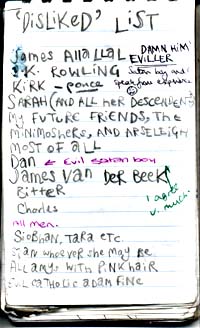 'DISLIKED' LIST
James Allallal DAMN HIM
EVILLER
J.K. ROWLING Satan boy and
KIRK - ponce
SARAH (AND ALL HER DESCENDENTS)
MY FUTURE FRIENDS, THE
MINIMOSHERS, AND ARSLEIGH
MOST OF ALL
Dan ← Evil satan boy
James VAN DER BEEK
Bitter I agree
Charles v. much.
All men.
SIOBHAN, TARA etc.
STAN whoever she may be
All anys with PINK hair
EVIL CATHOLIC ADAM FINE